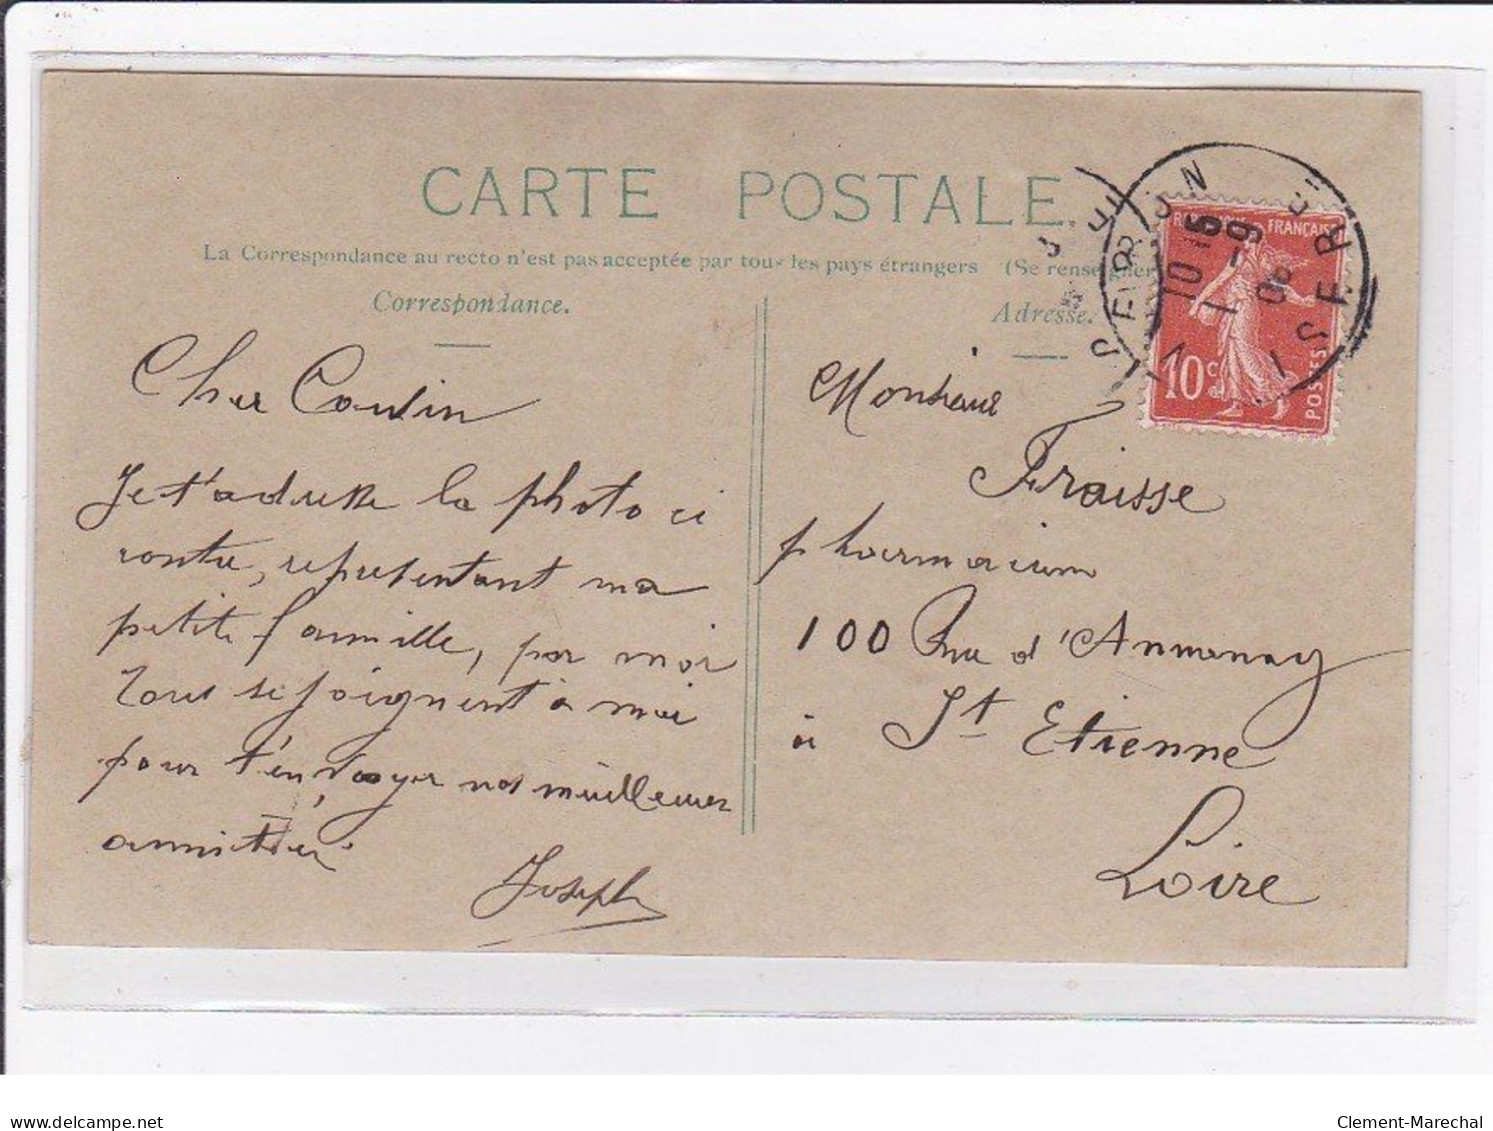 CARTE POSTALE
La Correspondance au recto n'est pas acceptée par tous les pays étrangers (Se renseigner
Correspondance.
Cher Cousin
Je t'adresse la photo ci
contre, représentant ma
petite famille, par moi
Tous se joignent à moi
pour t'envoyer nos meilleures
amitiés
Joseph
Adresse.
Monsieur
Fraisse
pharmacien
100 Rue d'Annonay
à St Etienne
Loire
FRANÇAISE
10 c
POSTES
10 15
1 - 9
08
ISERE
delcampe.net
Clement-Marechal